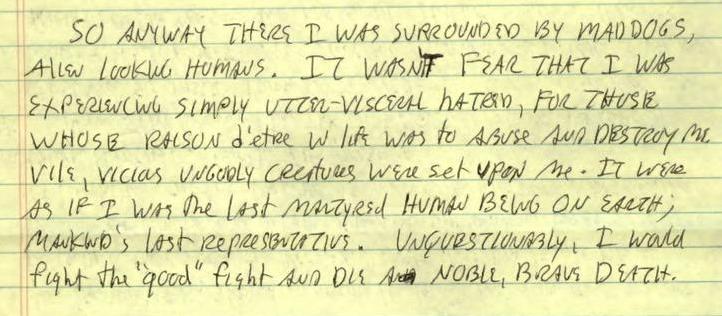 SO ANYWAY THERE I WAS SURROUNDED BY MAD DOGS,
ALIEN LOOKING HUMANS. IT WASN'T FEAR THAT I WAS
EXPERIENCING SIMPLY UTTER-VISCERAL HATRED, FOR THOSE
WHOSE RAISON d'etre IN life WAS to ABUSE AND DESTROY ME.
VILE, VICIAS UNGODLY CREATURES WERE SET UPON ME. IT WERE
AS IF I WAS THE LAST MARTYRED HUMAN BEING ON EARTH;
MANKIND'S LAST REPRESENTATIVE. UNQUESTIONABLY, I WOULD
fight the "good" fight AND DIE A NOBLE, BRAVE DEATH.